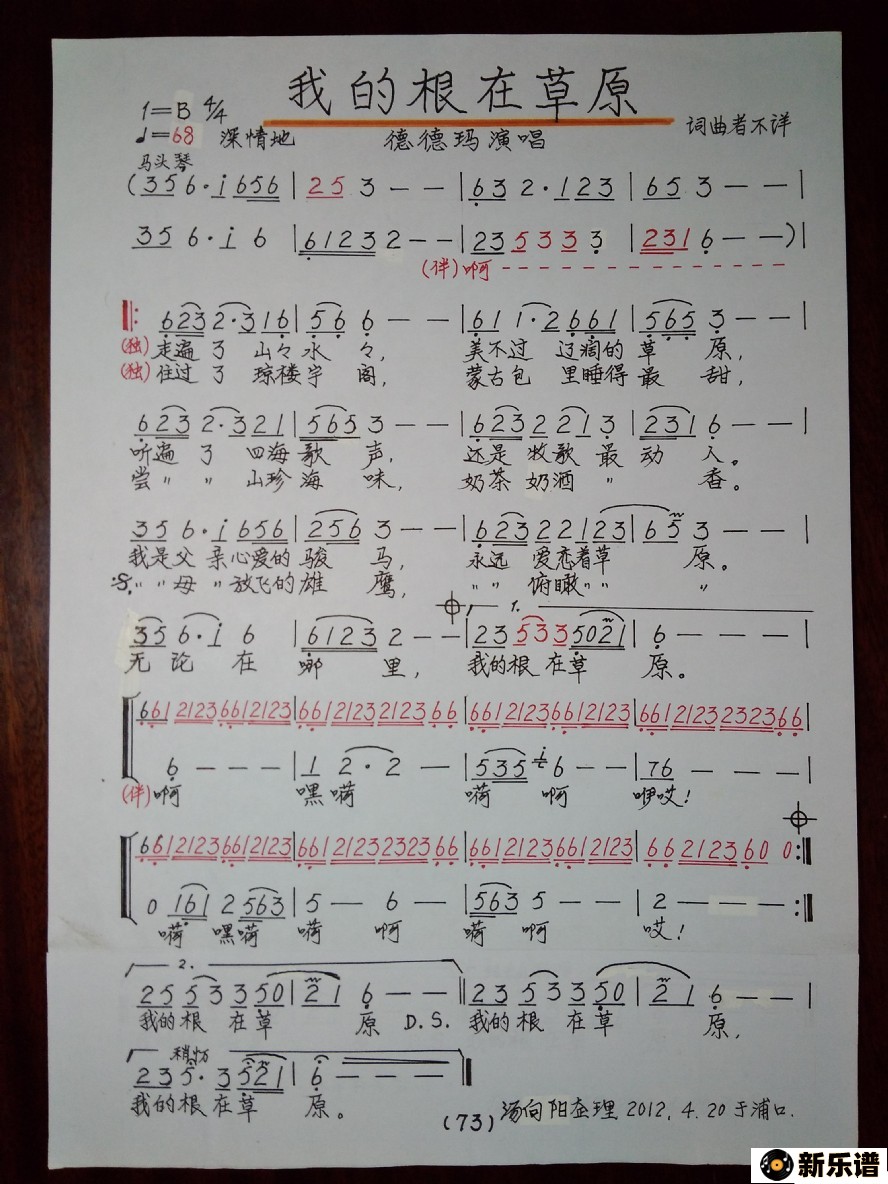 我的根在草原
1=B 4/4
♩=68 深情地 德德玛演唱 词曲者不详
马头琴
(356·i656|253--|632·123|653--|
356·i6|61232--|235333|2316--)|
(伴)啊
‖:6232·316|566--|611·2661|5653--|
(独)走遍了山々水々,美不过辽阔的草原,
(独)住过了琼楼宇阁,蒙古包里睡得最甜,
6232·321|5653--|6232213|2316--|
听遍了四海歌声,还是牧歌最动人。
尝〃〃山珍海味,奶茶奶酒〃香。
356·i656|2563--|62322123|653--|
我是父亲心爱的骏马,永远爱恋着草原。
〃〃母〃放飞的雄鹰,〃〃俯瞰〃〃〃
1.
356·i6|61232--|235335021|6---|
无论在哪里,我的根在草原。
6612123662123|662123212366|66121236612123|6612123232366|
6---|12·2-|535i6--|76---|
(伴)啊嘿嗬嗬啊咿哎!
6612123662123|662123232366|66121236612123|662123600:‖
01612563|5-6-|5635--|2---:‖
嗬嘿嗬嗬啊嗬啊哎!
2.
2553350|216--‖2353350|216--|
我的根在草原 D.S. 我的根在草原,
稍切
235·3521|6---‖
我的根在草原。
(73) 汤向阳整理 2012.4.20于浦口.
新乐谱